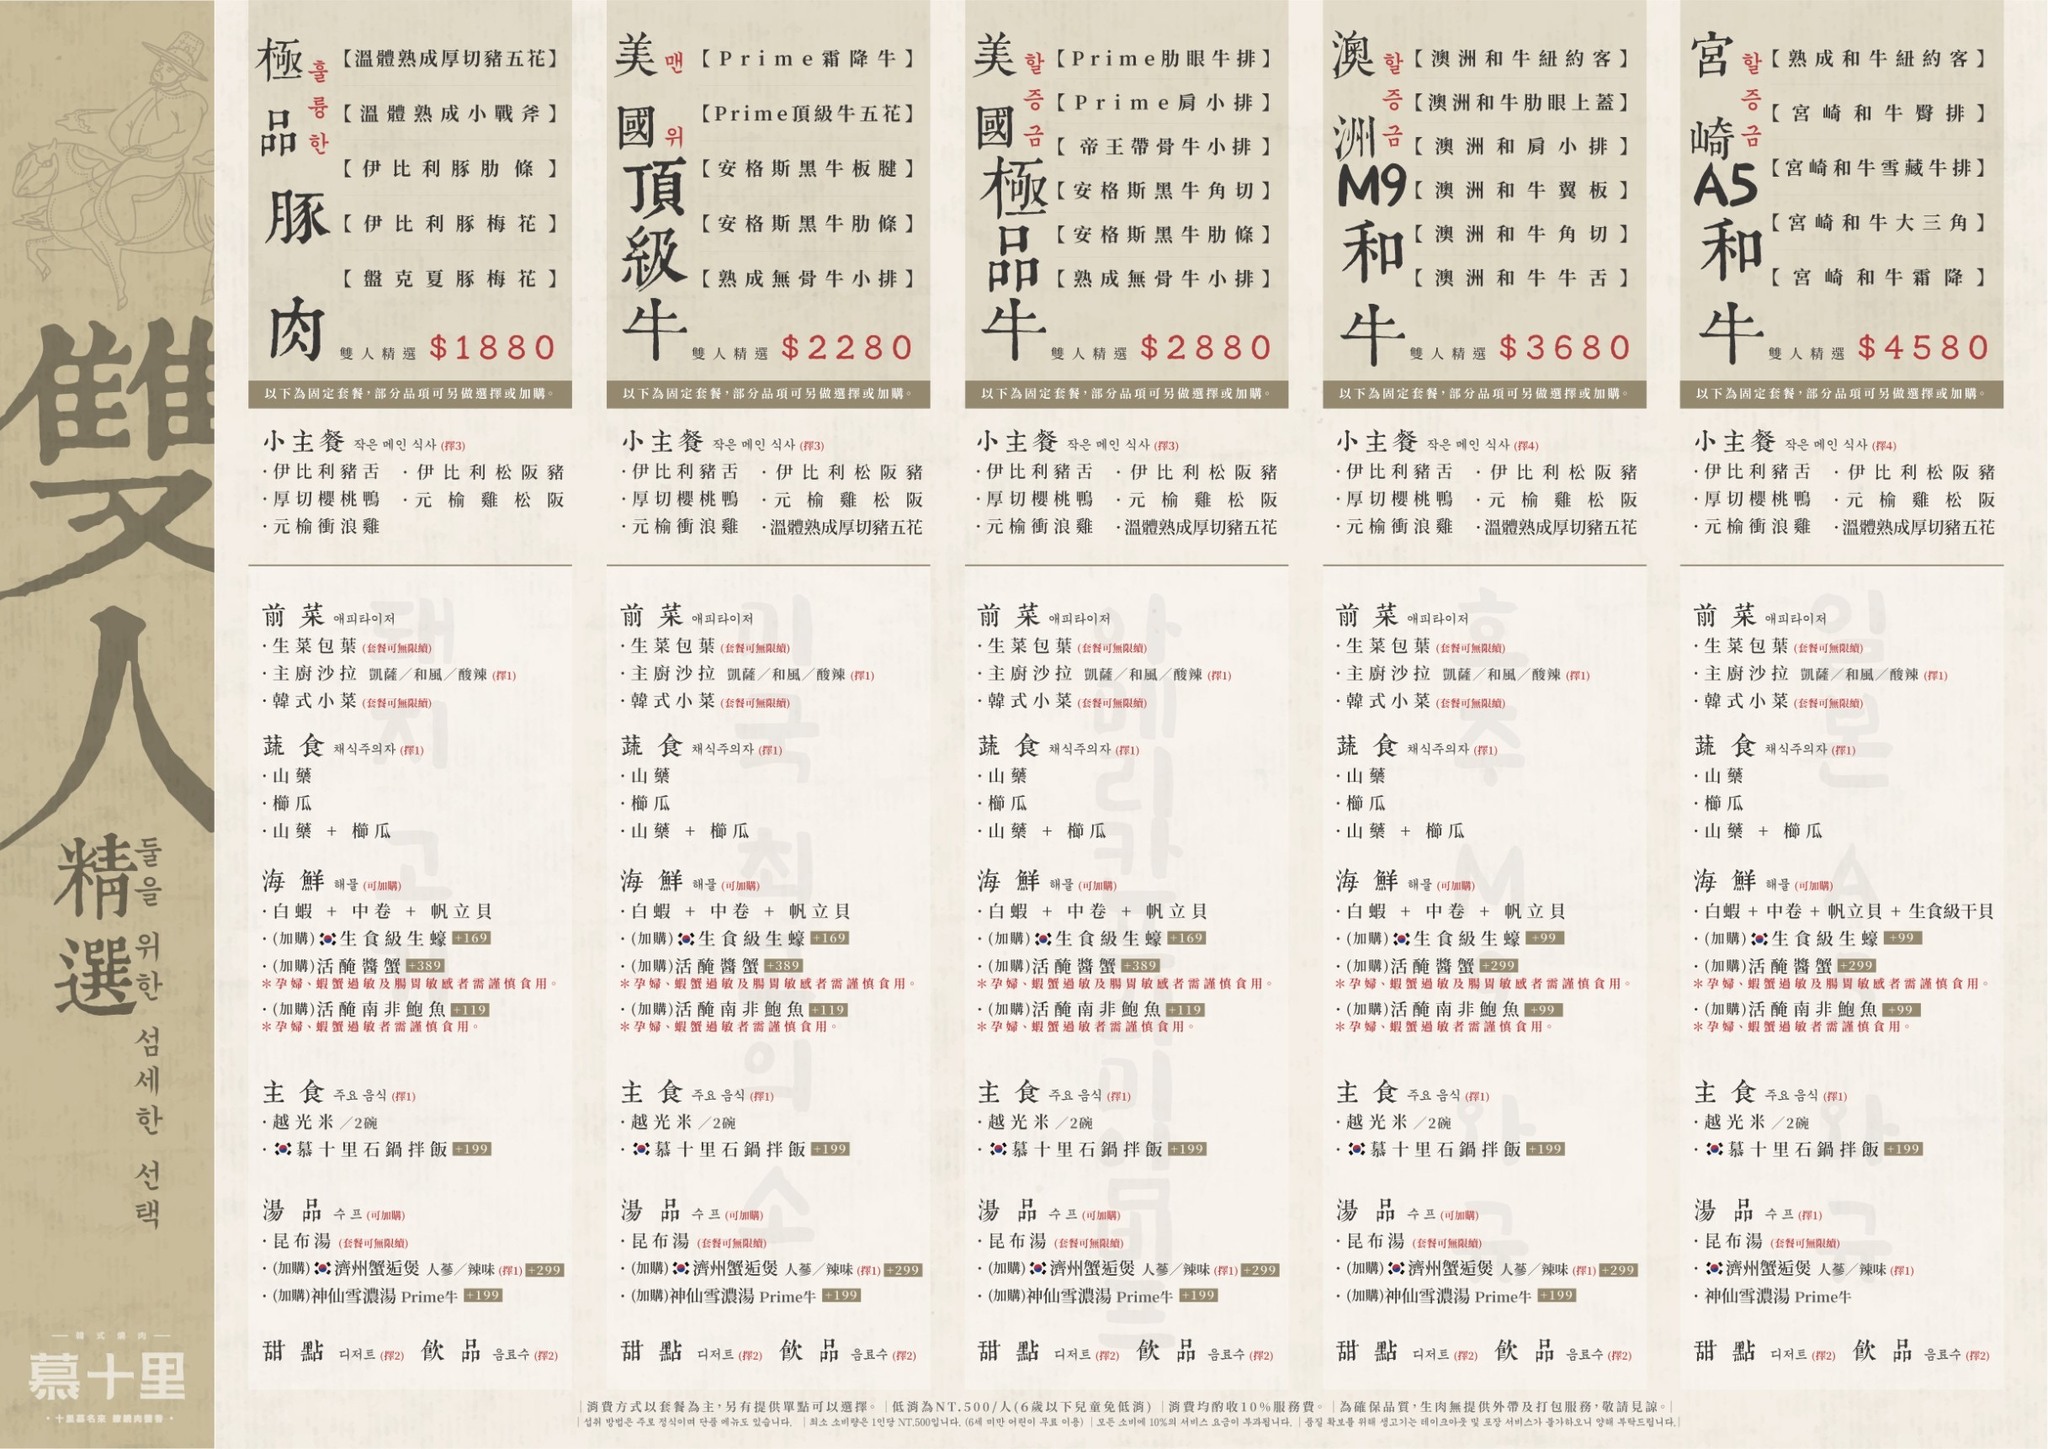 雙人
精選
둘을 위한 섬세한 선택
韓式燒肉
慕十里
極品豚肉
훌륭한
【溫體熟成厚切豬五花】
【溫體熟成小戰斧】
【伊比利豚肋條】
【伊比利豚梅花】
【盤克夏豚梅花】
雙人精選 $1880
以下為固定套餐，部分品項可另做選擇或加購。
小主餐 작은 메인 식사 (擇3)
·伊比利豬舌 ·伊比利松阪豬
·厚切櫻桃鴨 ·元榆雞松阪
·元榆衝浪雞
前菜 애피타이저
·生菜包葉 (套餐可無限續)
·主廚沙拉 凱薩／和風／酸辣 (擇1)
·韓式小菜 (套餐可無限續)
蔬食 채식주의자 (擇1)
·山藥
·櫛瓜
·山藥 + 櫛瓜
海鮮 해물 (可加購)
·白蝦 + 中卷 + 帆立貝
·(加購)生食級生蠔 +169
·(加購)活醃醬蟹 +389
＊孕婦、蝦蟹過敏及腸胃敏感者需謹慎食用。
·(加購)活醃南非鮑魚 +119
＊孕婦、蝦蟹過敏者需謹慎食用。
主食 주요 음식 (擇1)
·越光米 ／2碗
·慕十里石鍋拌飯 +199
湯品 수프 (可加購)
·昆布湯 (套餐可無限續)
·(加購)濟州蟹逅煲 人蔘／辣味 (擇1) +299
·(加購)神仙雪濃湯 Prime牛 +199
甜點 디저트 (擇2) 飲品 음료수 (擇2)
美國頂級牛
맨위
【Prime霜降牛】
【Prime頂級牛五花】
【安格斯黑牛板腱】
【安格斯黑牛肋條】
【熟成無骨牛小排】
雙人精選 $2280
以下為固定套餐，部分品項可另做選擇或加購。
小主餐 작은 메인 식사 (擇3)
·伊比利豬舌 ·伊比利松阪豬
·厚切櫻桃鴨 ·元榆雞松阪
·元榆衝浪雞 ·溫體熟成厚切豬五花
前菜 애피타이저
·生菜包葉 (套餐可無限續)
·主廚沙拉 凱薩／和風／酸辣 (擇1)
·韓式小菜 (套餐可無限續)
蔬食 채식주의자 (擇1)
·山藥
·櫛瓜
·山藥 + 櫛瓜
海鮮 해물 (可加購)
·白蝦 + 中卷 + 帆立貝
·(加購)生食級生蠔 +169
·(加購)活醃醬蟹 +389
＊孕婦、蝦蟹過敏及腸胃敏感者需謹慎食用。
·(加購)活醃南非鮑魚 +119
＊孕婦、蝦蟹過敏者需謹慎食用。
主食 주요 음식 (擇1)
·越光米 ／2碗
·慕十里石鍋拌飯 +199
湯品 수프 (可加購)
·昆布湯 (套餐可無限續)
·(加購)濟州蟹逅煲 人蔘／辣味 (擇1) +299
·(加購)神仙雪濃湯 Prime牛 +199
甜點 디저트 (擇2) 飲品 음료수 (擇2)
美國極品牛
할증금
【Prime肋眼牛排】
【Prime肩小排】
【帝王帶骨牛小排】
【安格斯黑牛角切】
【安格斯黑牛肋條】
【熟成無骨牛小排】
雙人精選 $2880
以下為固定套餐，部分品項可另做選擇或加購。
小主餐 작은 메인 식사 (擇3)
·伊比利豬舌 ·伊比利松阪豬
·厚切櫻桃鴨 ·元榆雞松阪
·元榆衝浪雞 ·溫體熟成厚切豬五花
前菜 애피타이저
·生菜包葉 (套餐可無限續)
·主廚沙拉 凱薩／和風／酸辣 (擇1)
·韓式小菜 (套餐可無限續)
蔬食 채식주의자 (擇1)
·山藥
·櫛瓜
·山藥 + 櫛瓜
海鮮 해물 (可加購)
·白蝦 + 中卷 + 帆立貝
·(加購)生食級生蠔 +169
·(加購)活醃醬蟹 +389
＊孕婦、蝦蟹過敏及腸胃敏感者需謹慎食用。
·(加購)活醃南非鮑魚 +119
＊孕婦、蝦蟹過敏者需謹慎食用。
主食 주요 음식 (擇1)
·越光米 ／2碗
·慕十里石鍋拌飯 +199
湯品 수프 (可加購)
·昆布湯 (套餐可無限續)
·(加購)濟州蟹逅煲 人蔘／辣味 (擇1) +299
·(加購)神仙雪濃湯 Prime牛 +199
甜點 디저트 (擇2) 飲品 음료수 (擇2)
澳洲M9和牛
할증금
【澳洲和牛紐約客】
【澳洲和牛肋眼上蓋】
【澳洲和肩小排】
【澳洲和牛翼板】
【澳洲和牛角切】
【澳洲和牛牛舌】
雙人精選 $3680
以下為固定套餐，部分品項可另做選擇或加購。
小主餐 작은 메인 식사 (擇4)
·伊比利豬舌 ·伊比利松阪豬
·厚切櫻桃鴨 ·元榆雞松阪
·元榆衝浪雞 ·溫體熟成厚切豬五花
前菜 애피타이저
·生菜包葉 (套餐可無限續)
·主廚沙拉 凱薩／和風／酸辣 (擇1)
·韓式小菜 (套餐可無限續)
蔬食 채식주의자 (擇1)
·山藥
·櫛瓜
·山藥 + 櫛瓜
海鮮 해물 (可加購)
·白蝦 + 中卷 + 帆立貝
·(加購)生食級生蠔 +99
·(加購)活醃醬蟹 +299
＊孕婦、蝦蟹過敏及腸胃敏感者需謹慎食用。
·(加購)活醃南非鮑魚 +99
＊孕婦、蝦蟹過敏者需謹慎食用。
主食 주요 음식 (擇1)
·越光米 ／2碗
·慕十里石鍋拌飯 +199
湯品 수프 (可加購)
·昆布湯 (套餐可無限續)
·(加購)濟州蟹逅煲 人蔘／辣味 (擇1) +299
·(加購)神仙雪濃湯 Prime牛 +199
甜點 디저트 (擇2) 飲品 음료수 (擇2)
宮崎A5和牛
할증금
【熟成和牛紐約客】
【宮崎和牛臀排】
【宮崎和牛雪藏牛排】
【宮崎和牛大三角】
【宮崎和牛霜降】
雙人精選 $4580
以下為固定套餐，部分品項可另做選擇或加購。
小主餐 작은 메인 식사 (擇4)
·伊比利豬舌 ·伊比利松阪豬
·厚切櫻桃鴨 ·元榆雞松阪
·元榆衝浪雞 ·溫體熟成厚切豬五花
前菜 애피타이저
·生菜包葉 (套餐可無限續)
·主廚沙拉 凱薩／和風／酸辣 (擇1)
·韓式小菜 (套餐可無限續)
蔬食 채식주의자 (擇1)
·山藥
·櫛瓜
·山藥 + 櫛瓜
海鮮 해물 (可加購)
·白蝦 + 中卷 + 帆立貝 + 生食級干貝
·(加購)生食級生蠔 +99
·(加購)活醃醬蟹 +299
＊孕婦、蝦蟹過敏及腸胃敏感者需謹慎食用。
·(加購)活醃南非鮑魚 +99
＊孕婦、蝦蟹過敏者需謹慎食用。
主食 주요 음식 (擇1)
·越光米 ／2碗
·慕十里石鍋拌飯 +199
湯品 수프 (擇1)
·昆布湯 (套餐可無限續)
·濟州蟹逅煲 人蔘／辣味 (擇1)
·神仙雪濃湯 Prime牛
甜點 디저트 (擇2) 飲品 음료수 (擇2)
|消費方式以套餐為主，另有提供單點可以選擇。|低消為NT.500/人(6歲以下兒童免低消)|消費均酌收10%服務費。|為確保品質，生肉無提供外帶及打包服務，敬請見諒。|
|섭취 방법은 주로 정식이며 단품 메뉴도 있습니다. |최소 소비량은 1인당 NT.500입니다. (6세 미만 어린이 무료 이용) |모든 소비에 10%의 서비스 요금이 부과됩니다. |품질 확보를 위해 생고기는 테이크아웃 및 포장 서비스가 불가하오니 양해 부탁드립니다.|